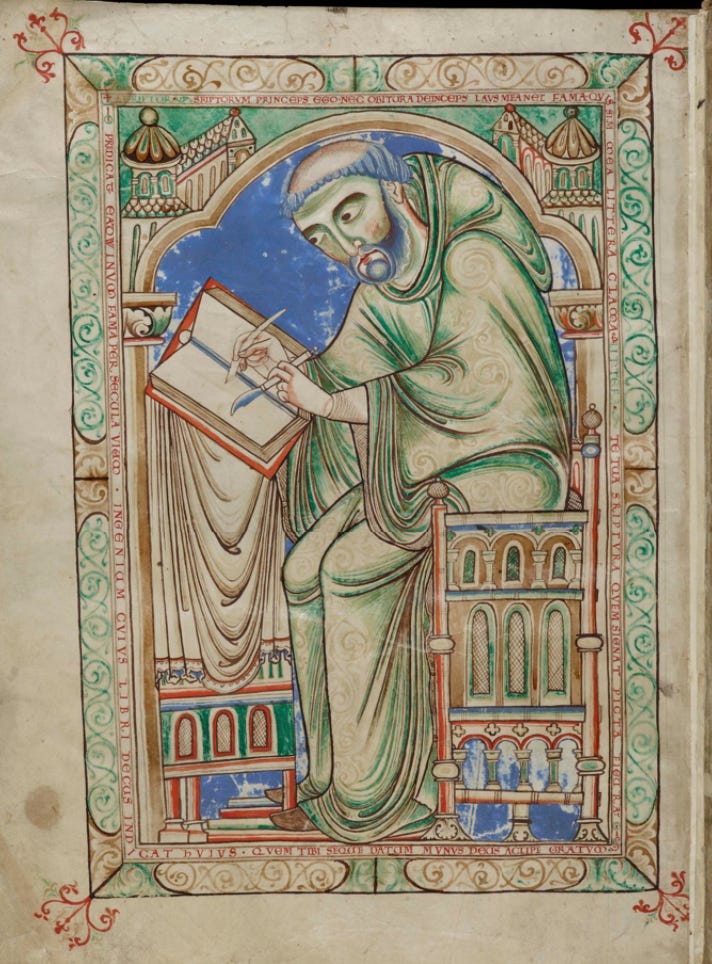 SCRIPTORVM PRINCEPS EGO NEC OBITVRA DEINCEPS LAVS MEA NEC FAMA QVI
S SIM MEA LITTERA CLAMA LITTERA · TE TVA SCRIPTVRA QVEM SIGNAT PICTA FIGVRA
PREDICAT EADWINVM FAMA PER SECVLA VIVVM · INGENIVM CVIVS LIBRI DECVS IND
ICAT HVIVS · QVEM TIBI SEQVE DATVM MVNVS DEVS ACCIPE GRATVM